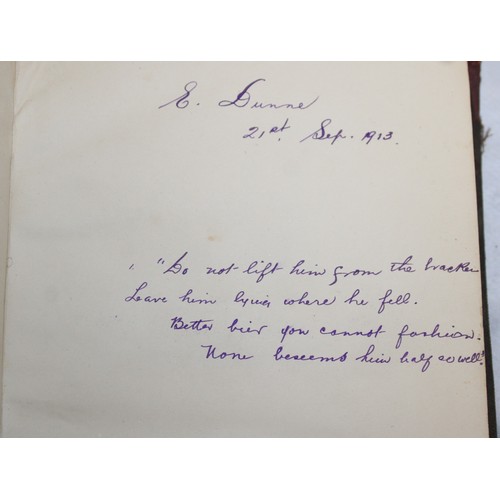 E. Dunne
21st Sep. 1913.
"Do not lift him from the bracken
Leave him lying where he fell.
Better bier you cannot fashion.
None beseems him half so well."